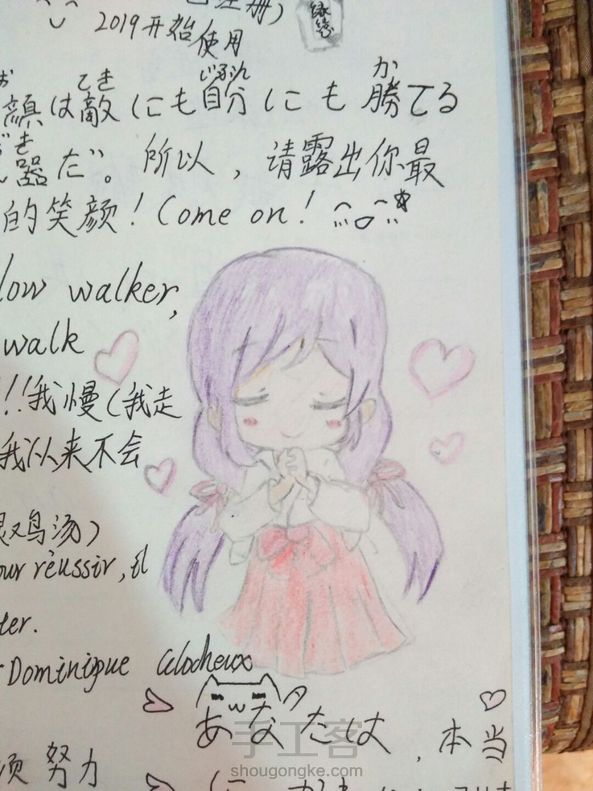 2019开始使用
顔は敵にも自分にも勝てる
器だ。所以，请露出你最
的笑颜！Come on！
low walker,
walk
!!我慢(我走
我从来不会
鸡汤）
our réussir, il
ter.
Dominique Glocheux
あなたは，本当
须努力
手工客
shougongke.com